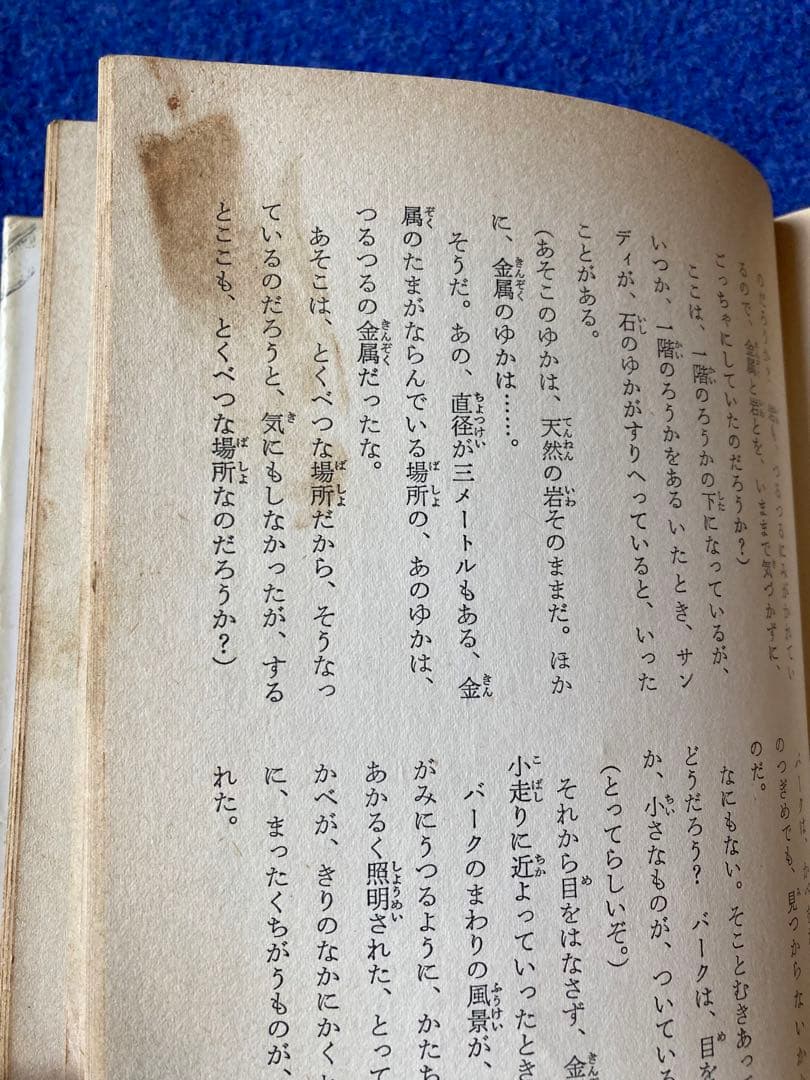 つるつるにみがかれてい
るので、金属と岩とを、いままで気づかずに、
ごっちゃにしていたのだろうか?)
ここは、一階のろうかの下になっているが、
いつか、一階のろうかをあるいたとき、サン
ディが、石のゆかがすりへっていると、いった
ことがある。
(あそこのゆかは、天然の岩そのままだ。ほか
に、金属のゆかは……。
そうだ。あの、直径が三メートルもある、金
属のたまがならんでいる場所の、あのゆかは、
つるつるの金属だったな。
あそこは、とくべつな場所だから、そうなっ
ているのだろうと、気にもしなかったが、する
とここも、とくべつな場所なのだろうか?)
のつぎめでも、見つからないか
のだ。
なにもない。そことむきあっ
どうだろう? バークは、目を
か、小さなものが、ついている
(とってらしいぞ。)
それから目をはなさず、金
小走りに近よっていったとき
バークのまわりの風景が、
がみにうつるように、かたち
あかるく照明された、とって
かべが、きりのなかにかく
に、まったくちがうものが、
れた。